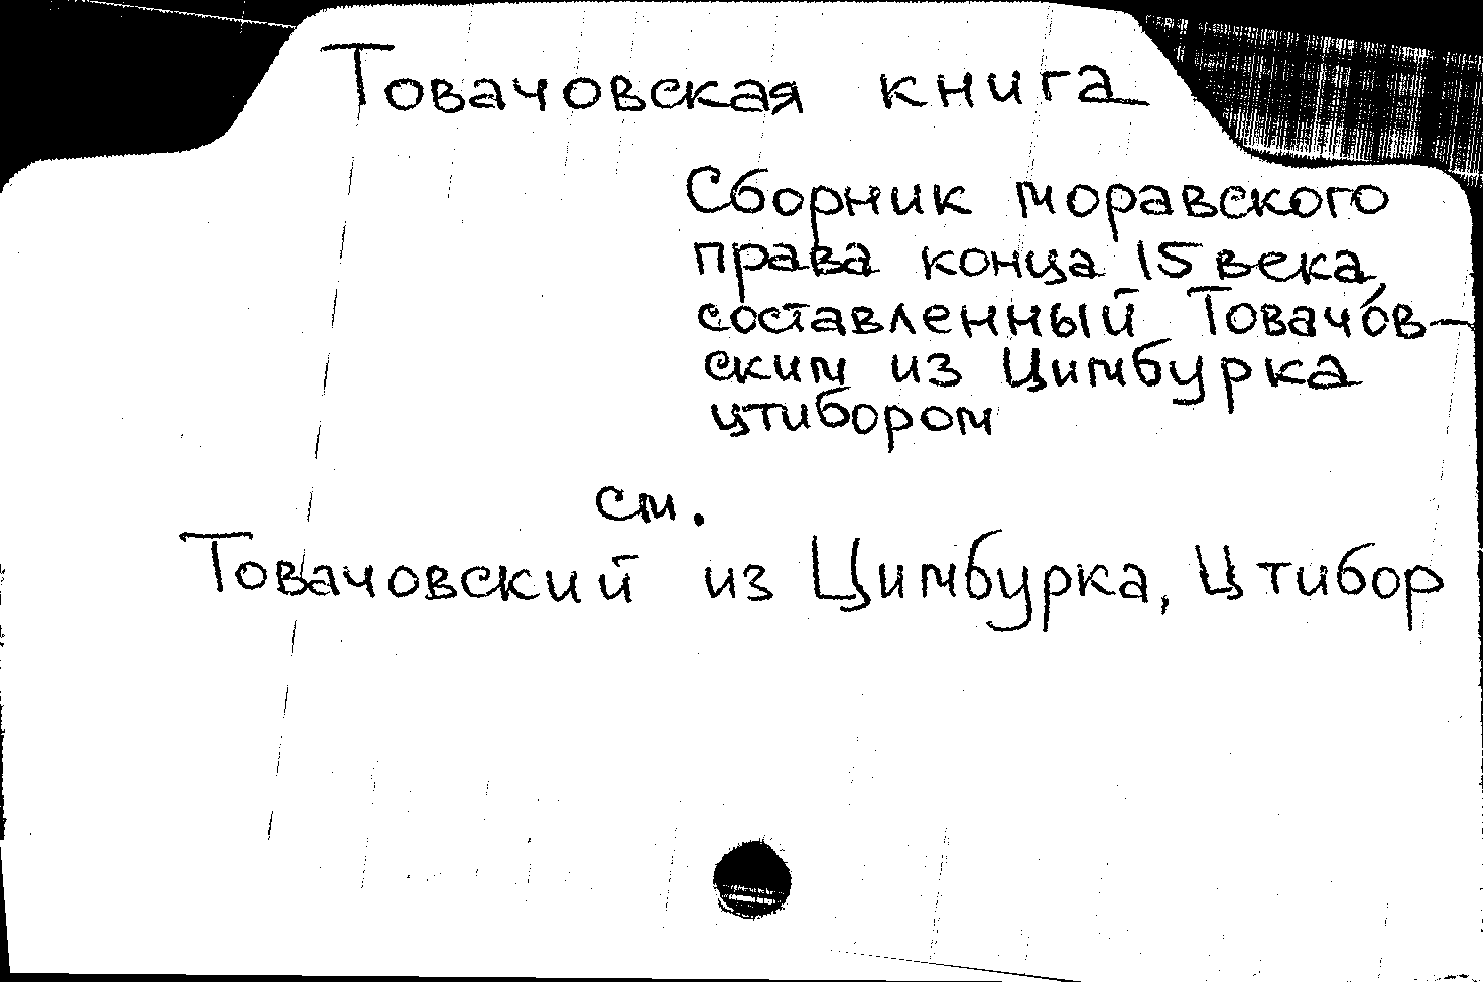 Товачовская книга
Сборник моравского
права конца 15 века,
составленный Товачов-
ским из Цимбурка
цтибором
см.
Товачовский из Цимбурка, Цтибор